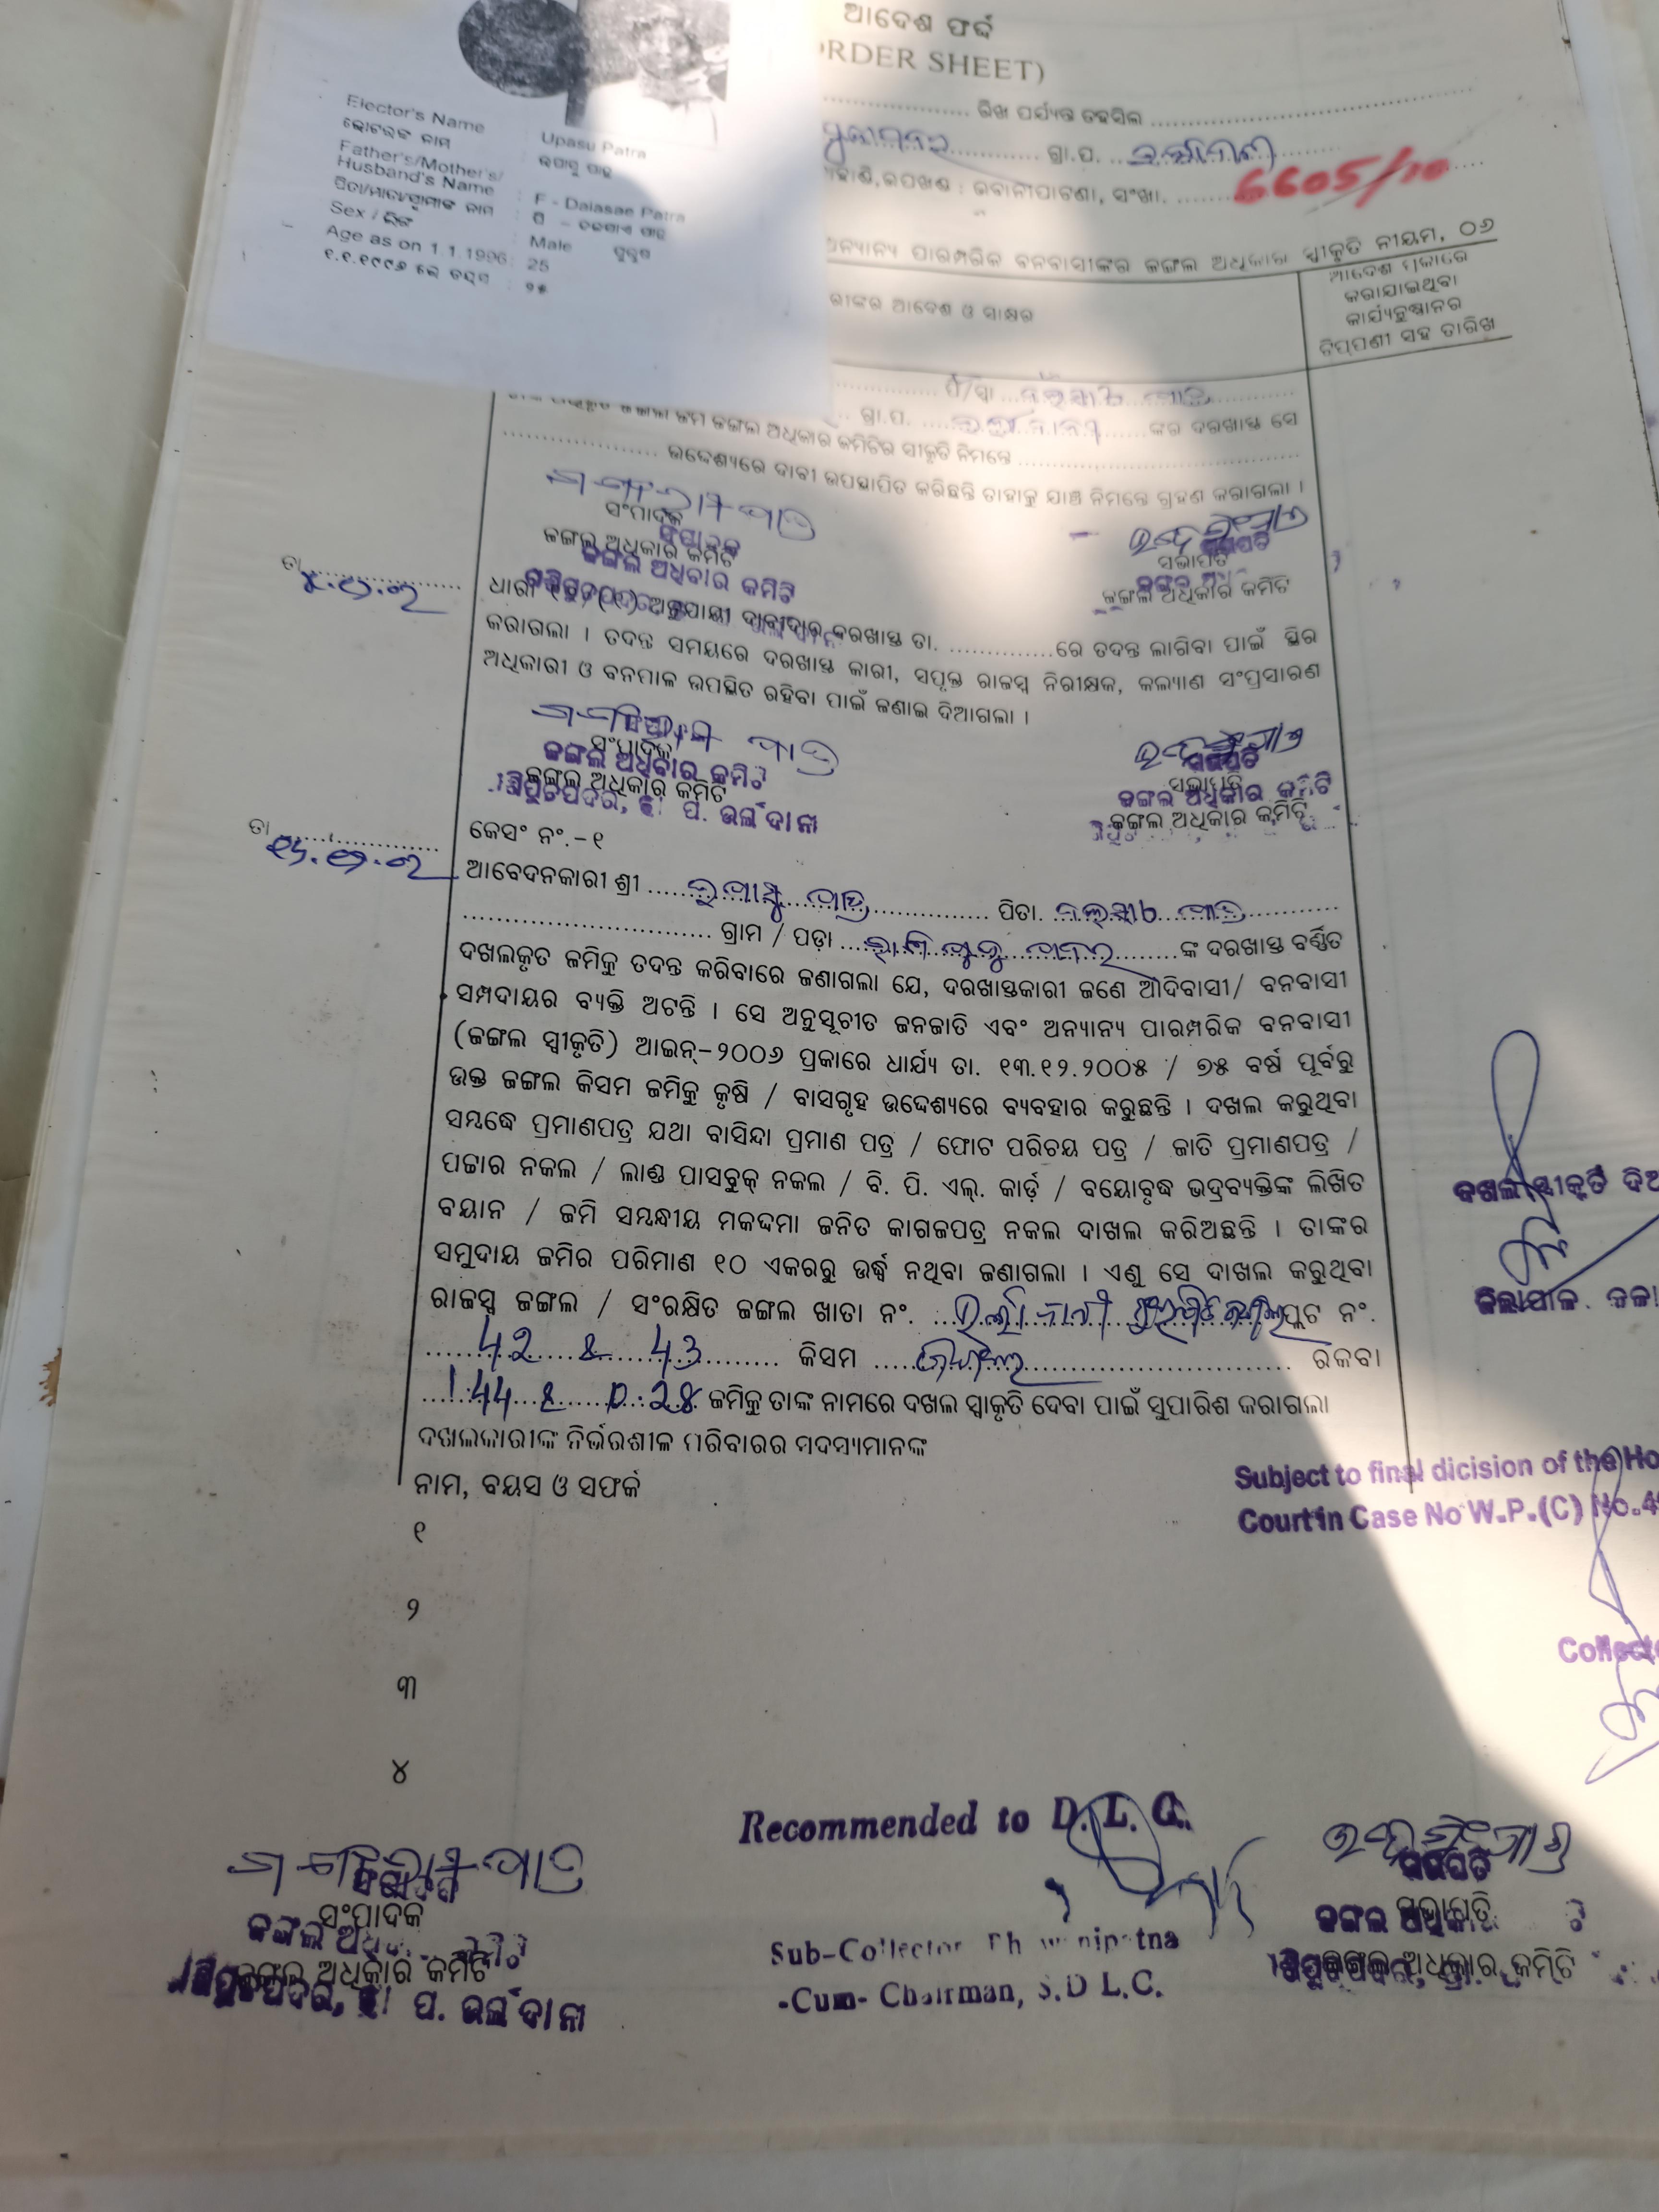 ଆଦେଶ ଫର୍ଦ୍ଦ
ORDER SHEET)
Elector's Name : Upasu Patra
ଭୋଟରଙ୍କ ନାମ : ଉପାସୁ ପାତ୍ର
Father's/Mother's/
Husband's Name : F - Dalasae Patra
ପିତା/ମାତା/ସ୍ୱାମୀଙ୍କ ନାମ : ପି -
Sex / ଲିଙ୍ଗ : Male ପୁରୁଷ
Age as on 1.1.1996 : 25
୧.୧.୧୯୯୬ ରେ ବୟସ : ୨୫
ରିଖ ପର୍ଯ୍ୟନ୍ତ ତହସିଲ
ଗ୍ରା.ପ.
ଉପଖଣ୍ଡ : ଭବାନୀପାଟଣା, ସଂଖା. 6605/10
ଅନ୍ୟାନ୍ୟ ପାରମ୍ପରିକ ବନବାସୀଙ୍କର ଜଙ୍ଗଲ ଅଧିକାର ସ୍ୱୀକୃତି ନୀୟମ, ୦୬
ରୀଙ୍କର ଆଦେଶ ଓ ସାକ୍ଷର
ଆଦେଶ ପ୍ରକାରେ
କରାଯାଇଥିବା
କାର୍ଯ୍ୟନୁଷ୍ଠାନର
ଟିପ୍ପଣୀ ସହ ତାରିଖ
ପି/ସ୍ୱା
ଗ୍ରା.ପ. ଙ୍କର ଦରଖାସ୍ତ ସେ
ଜଙ୍ଗଲ ଜମି ଜଙ୍ଗଲ ଅଧିକାର କମିଟିର ସ୍ୱୀକୃତି ନିମନ୍ତେ
ଉଦ୍ଦେଶ୍ୟରେ ଦାବୀ ଉପସ୍ଥାପିତ କରିଛନ୍ତି ତାହାକୁ ଯାଞ୍ଚ ନିମନ୍ତେ ଗ୍ରହଣ କରାଗଲା ।
ସଂପାଦକ
ଜଙ୍ଗଲ ଅଧିକାର କମିଟି
ସଭାପତି
ଜଙ୍ଗଲ ଅଧିକାର କମିଟି
ତା
ଧାରା ଅନୁଯାୟୀ ଦାବୀଦାର ଦରଖାସ୍ତ ତା. ରେ ତଦନ୍ତ ଲାଗିବା ପାଇଁ ସ୍ଥିର
କରାଗଲା । ତଦନ୍ତ ସମୟରେ ଦରଖାସ୍ତ କାରୀ, ସପୃକ୍ତ ରାଜସ୍ୱ ନିରୀକ୍ଷକ, କଲ୍ୟାଣ ସଂପ୍ରସାରଣ
ଅଧିକାରୀ ଓ ବନପାଳ ଉପସ୍ଥିତ ରହିବା ପାଇଁ ଜଣାଇ ଦିଆଗଲା ।
ସଂପାଦକ
ଜଙ୍ଗଲ ଅଧିକାର କମିଟି
ସଭାପତି
ଜଙ୍ଗଲ ଅଧିକାର କମିଟି
ତା
କେସଂ ନଂ.-୧
ଆବେଦନକାରୀ ଶ୍ରୀ ଉପାସୁ ପାତ୍ର ପିତା. ପାତ୍ର
ଗ୍ରାମ / ପଡ଼ା ଙ୍କ ଦରଖାସ୍ତ ବର୍ଣ୍ଣିତ
ଦଖଲକୃତ ଜମିକୁ ତଦନ୍ତ କରିବାରେ ଜଣାଗଲା ଯେ, ଦରଖାସ୍ତକାରୀ ଜଣେ ଆଦିବାସୀ/ ବନବାସୀ
ସମ୍ପଦାୟର ବ୍ୟକ୍ତି ଅଟନ୍ତି । ସେ ଅନୁସୂଚୀତ ଜନଜାତି ଏବଂ ଅନ୍ୟାନ୍ୟ ପାରମ୍ପରିକ ବନବାସୀ
(ଜଙ୍ଗଲ ସ୍ୱୀକୃତି) ଆଇନ୍-୨୦୦୬ ପ୍ରକାରେ ଧାର୍ଯ୍ୟ ତା. ୧୩.୧୨.୨୦୦୫ / ୭୫ ବର୍ଷ ପୂର୍ବରୁ
ଉକ୍ତ ଜଙ୍ଗଲ କିସମ ଜମିକୁ କୃଷି / ବାସଗୃହ ଉଦ୍ଦେଶ୍ୟରେ ବ୍ୟବହାର କରୁଛନ୍ତି । ଦଖଲ କରୁଥିବା
ସମ୍ବନ୍ଧେ ପ୍ରମାଣପତ୍ର ଯଥା ବାସିନ୍ଦା ପ୍ରମାଣ ପତ୍ର / ଫୋଟ ପରିଚୟ ପତ୍ର / ଜାତି ପ୍ରମାଣପତ୍ର /
ପଟ୍ଟାର ନକଲ / ଲାଣ୍ଡ ପାସବୁକ୍ ନକଲ / ବି. ପି. ଏଲ୍. କାର୍ଡ଼ / ବୟୋବୃଦ୍ଧ ଭଦ୍ରବ୍ୟକ୍ତିଙ୍କ ଲିଖିତ
ବୟାନ / ଜମି ସମ୍ବନ୍ଧୀୟ ମକଦ୍ଦମା ଜନିତ କାଗଜପତ୍ର ନକଲ ଦାଖଲ କରିଅଛନ୍ତି । ତାଙ୍କର
ସମୁଦାୟ ଜମିର ପରିମାଣ ୧୦ ଏକରରୁ ଉର୍ଦ୍ଧ୍ୱ ନଥିବା ଜଣାଗଲା । ଏଣୁ ସେ ଦାଖଲ କରୁଥିବା
ରାଜସ୍ୱ ଜଙ୍ଗଲ / ସଂରକ୍ଷିତ ଜଙ୍ଗଲ ଖାତା ନଂ. ପ୍ଲଟ ନଂ.
42 & 43 କିସମ ଜଙ୍ଗଲ ରକବା
1.44 & 0.28 ଜମିକୁ ତାଙ୍କ ନାମରେ ଦଖଲ ସ୍ୱୀକୃତି ଦେବା ପାଇଁ ସୁପାରିଶ କରାଗଲା
ଦଖଲକାରୀଙ୍କ ନିର୍ଭରଶୀଳ ପରିବାରର ସଦସ୍ୟମାନଙ୍କ
ନାମ, ବୟସ ଓ ସଫର୍କ
ଦଖଲ ସ୍ୱୀକୃତି ଦିଆ
ଜିଲାପାଳ
Subject to final dicision of the Ho
Court in Case No W.P.(C) No.4
୧
୨
୩
୪
Collecto
Recommended to D. L. C.
Sub-Collector Bhawanipatna
-Cum- Chairman, S.D L.C.
ସଂପାଦକ
ଜଙ୍ଗଲ ଅଧିକାର କମିଟି
ସଭାପତି
ଜଙ୍ଗଲ ଅଧିକାର କମିଟି